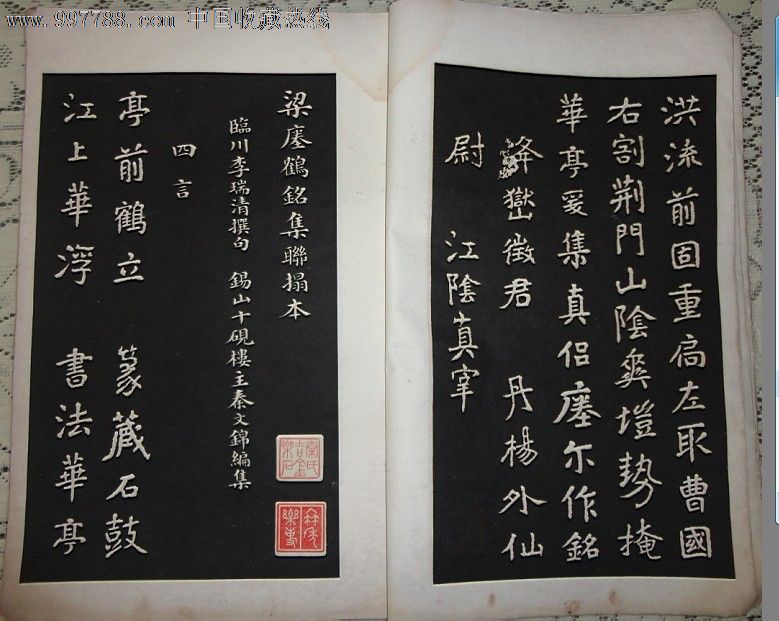 www.997788.com 中国收藏热线
洪流前固重扃左取曹國
右割荆門山陰爽塏勢掩
華亭爰集真侣瘞尔作銘
夅嶽徵君 丹楊外仙
尉 江陰真宰
梁瘞鶴銘集聯搨本
臨川李瑞清撰句 錫山十硯樓主秦文錦編集
秦氏吉金樂石
四言
亭前鶴立 篆藏石鼓
江上華浮 書法華亭